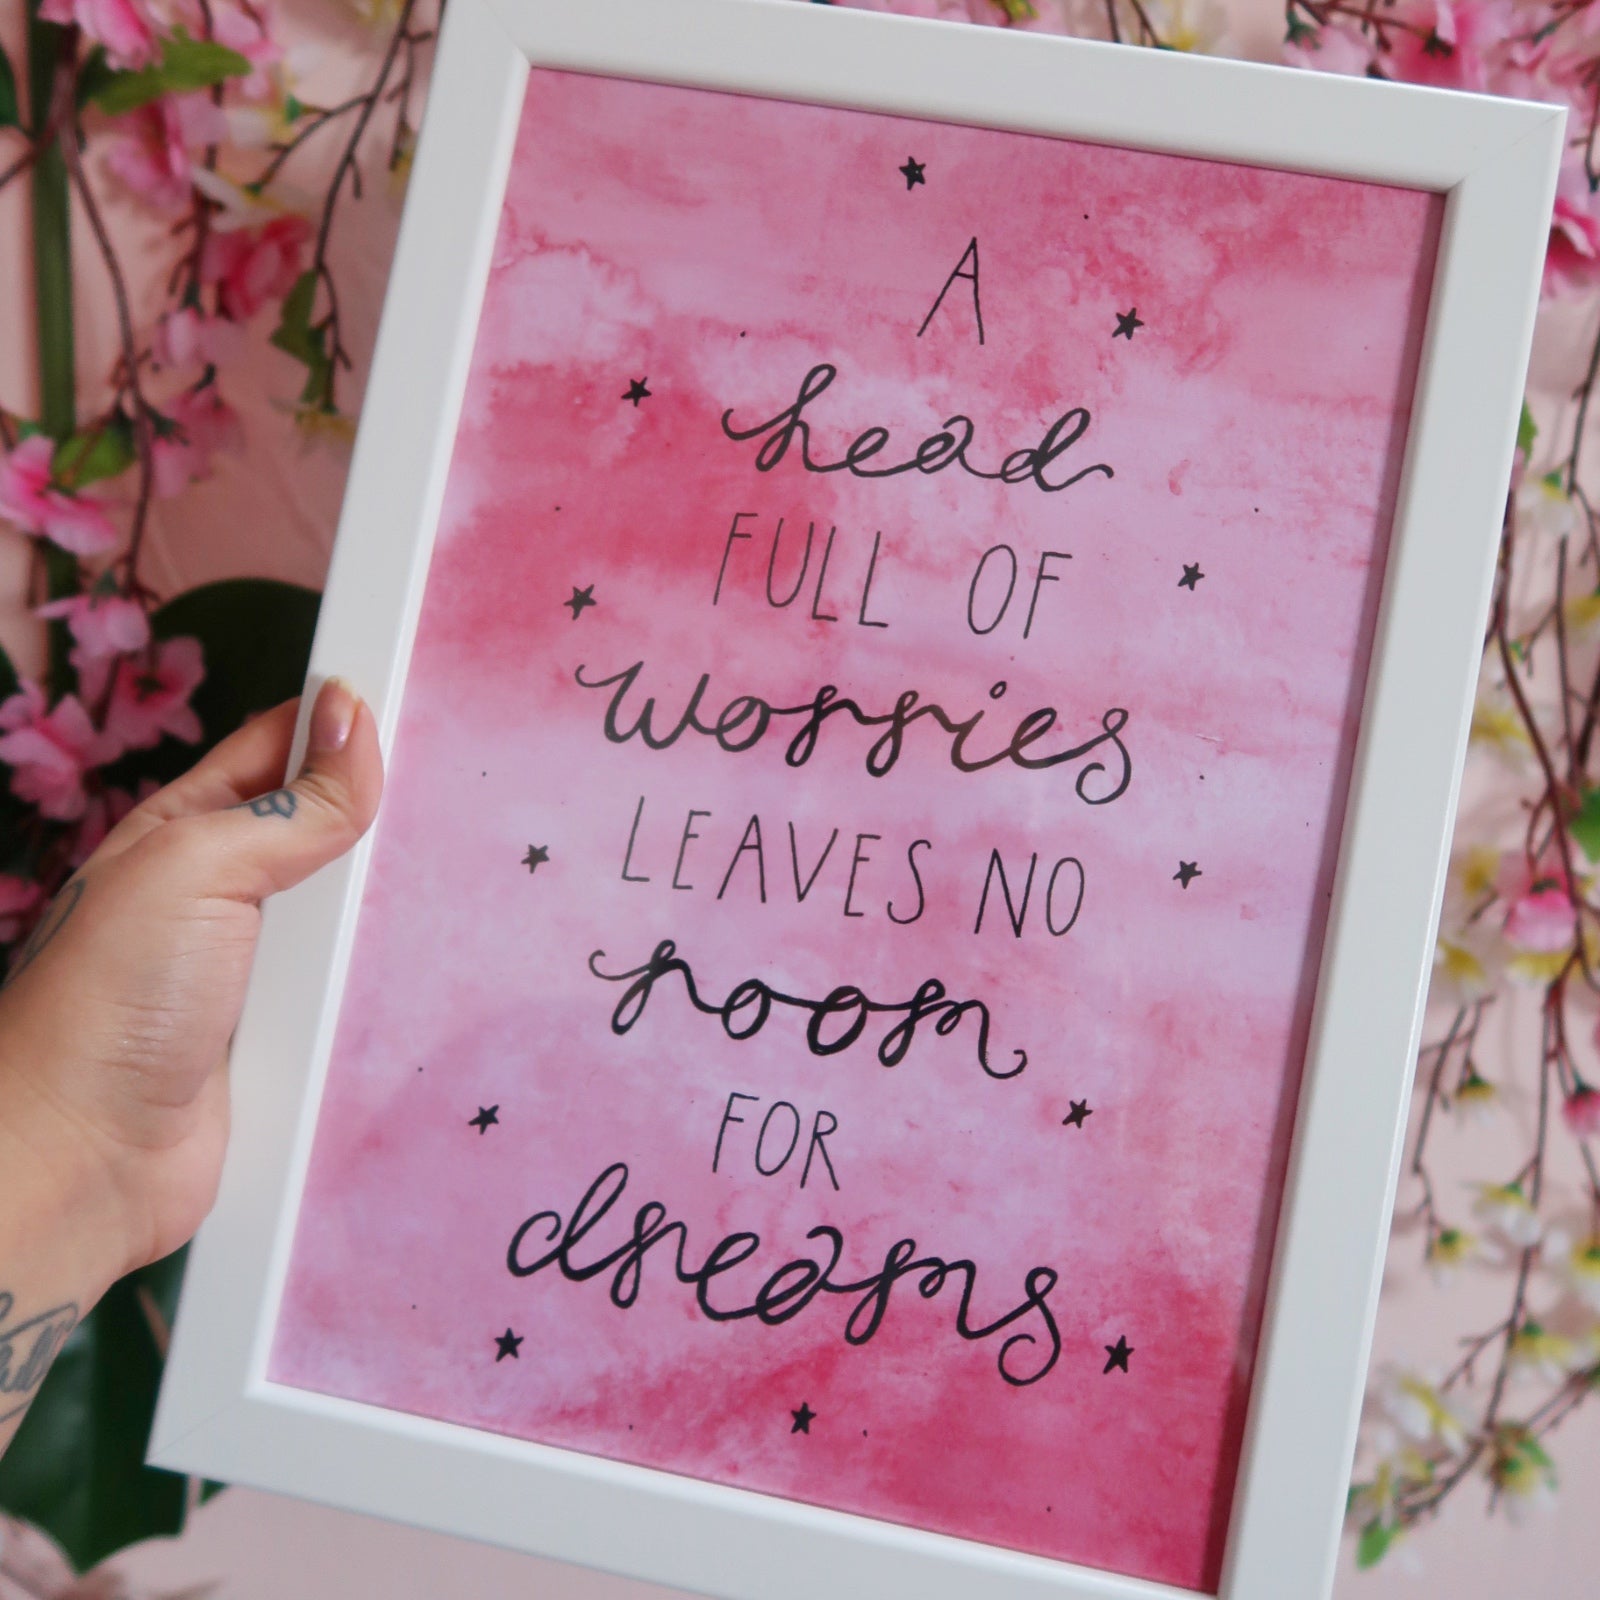 A
head
FULL OF
worries
LEAVES NO
room
FOR
dreams